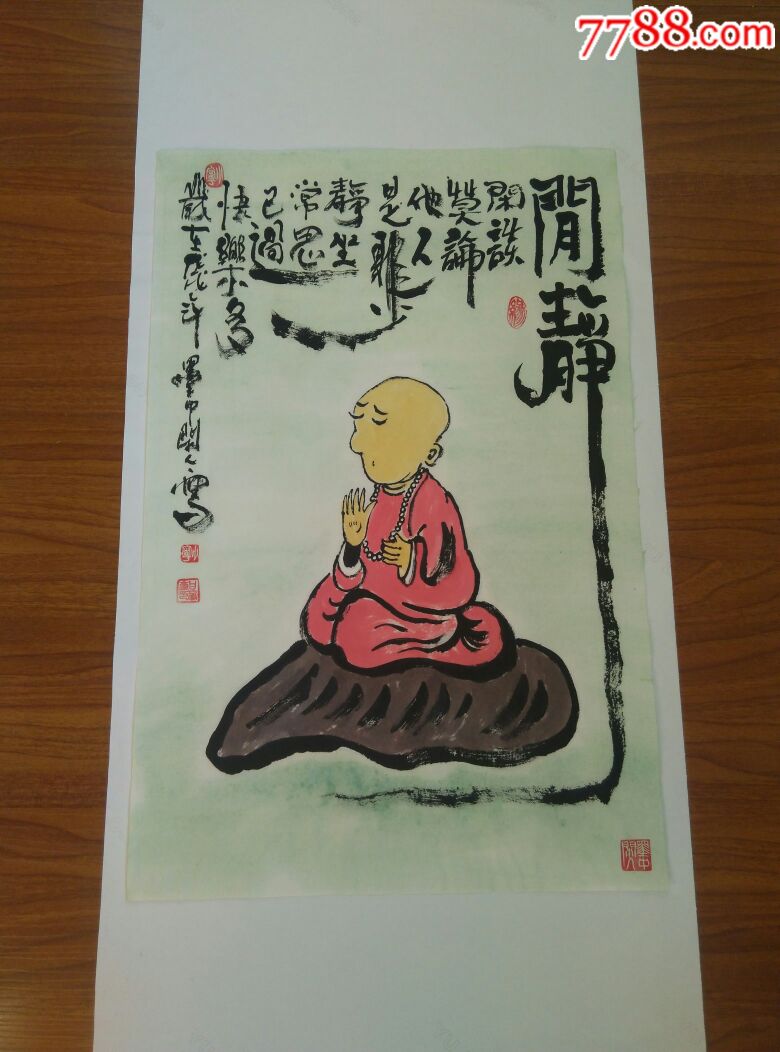 7788.com
閒靜
閑談
莫論
他人
是非
靜坐
常思
己過
快樂多
歲在戊戌年墨中閑人寫